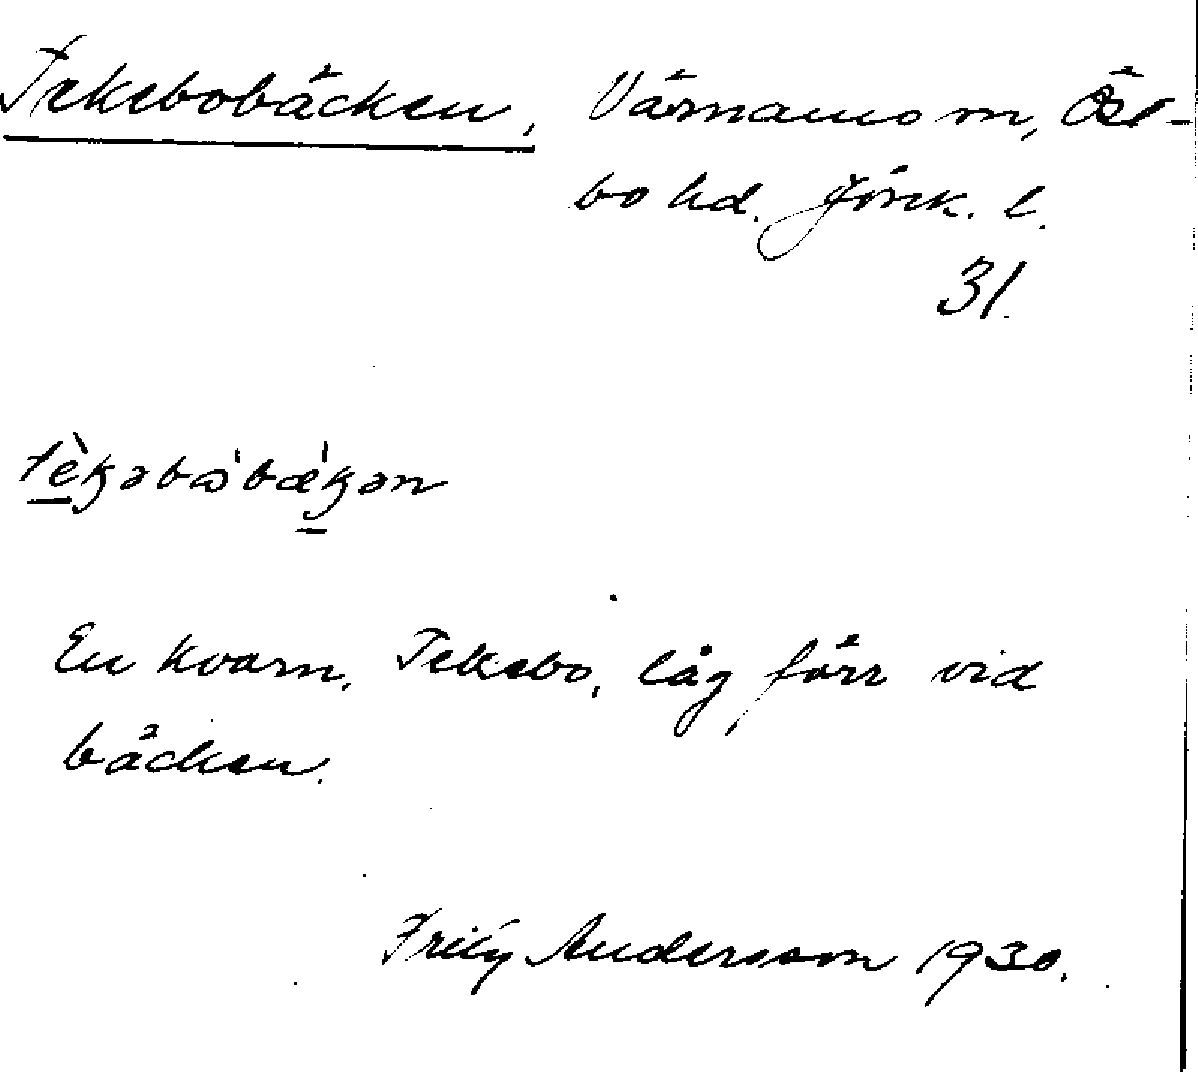 Tekebobäcken, Värnamo sn, Öst-
bo hd. Jönk. l.
31.
tèkəbὼbǽkən
En kvarn, Tekebo, låg förr vid
bäcken.
Andersson 1930.